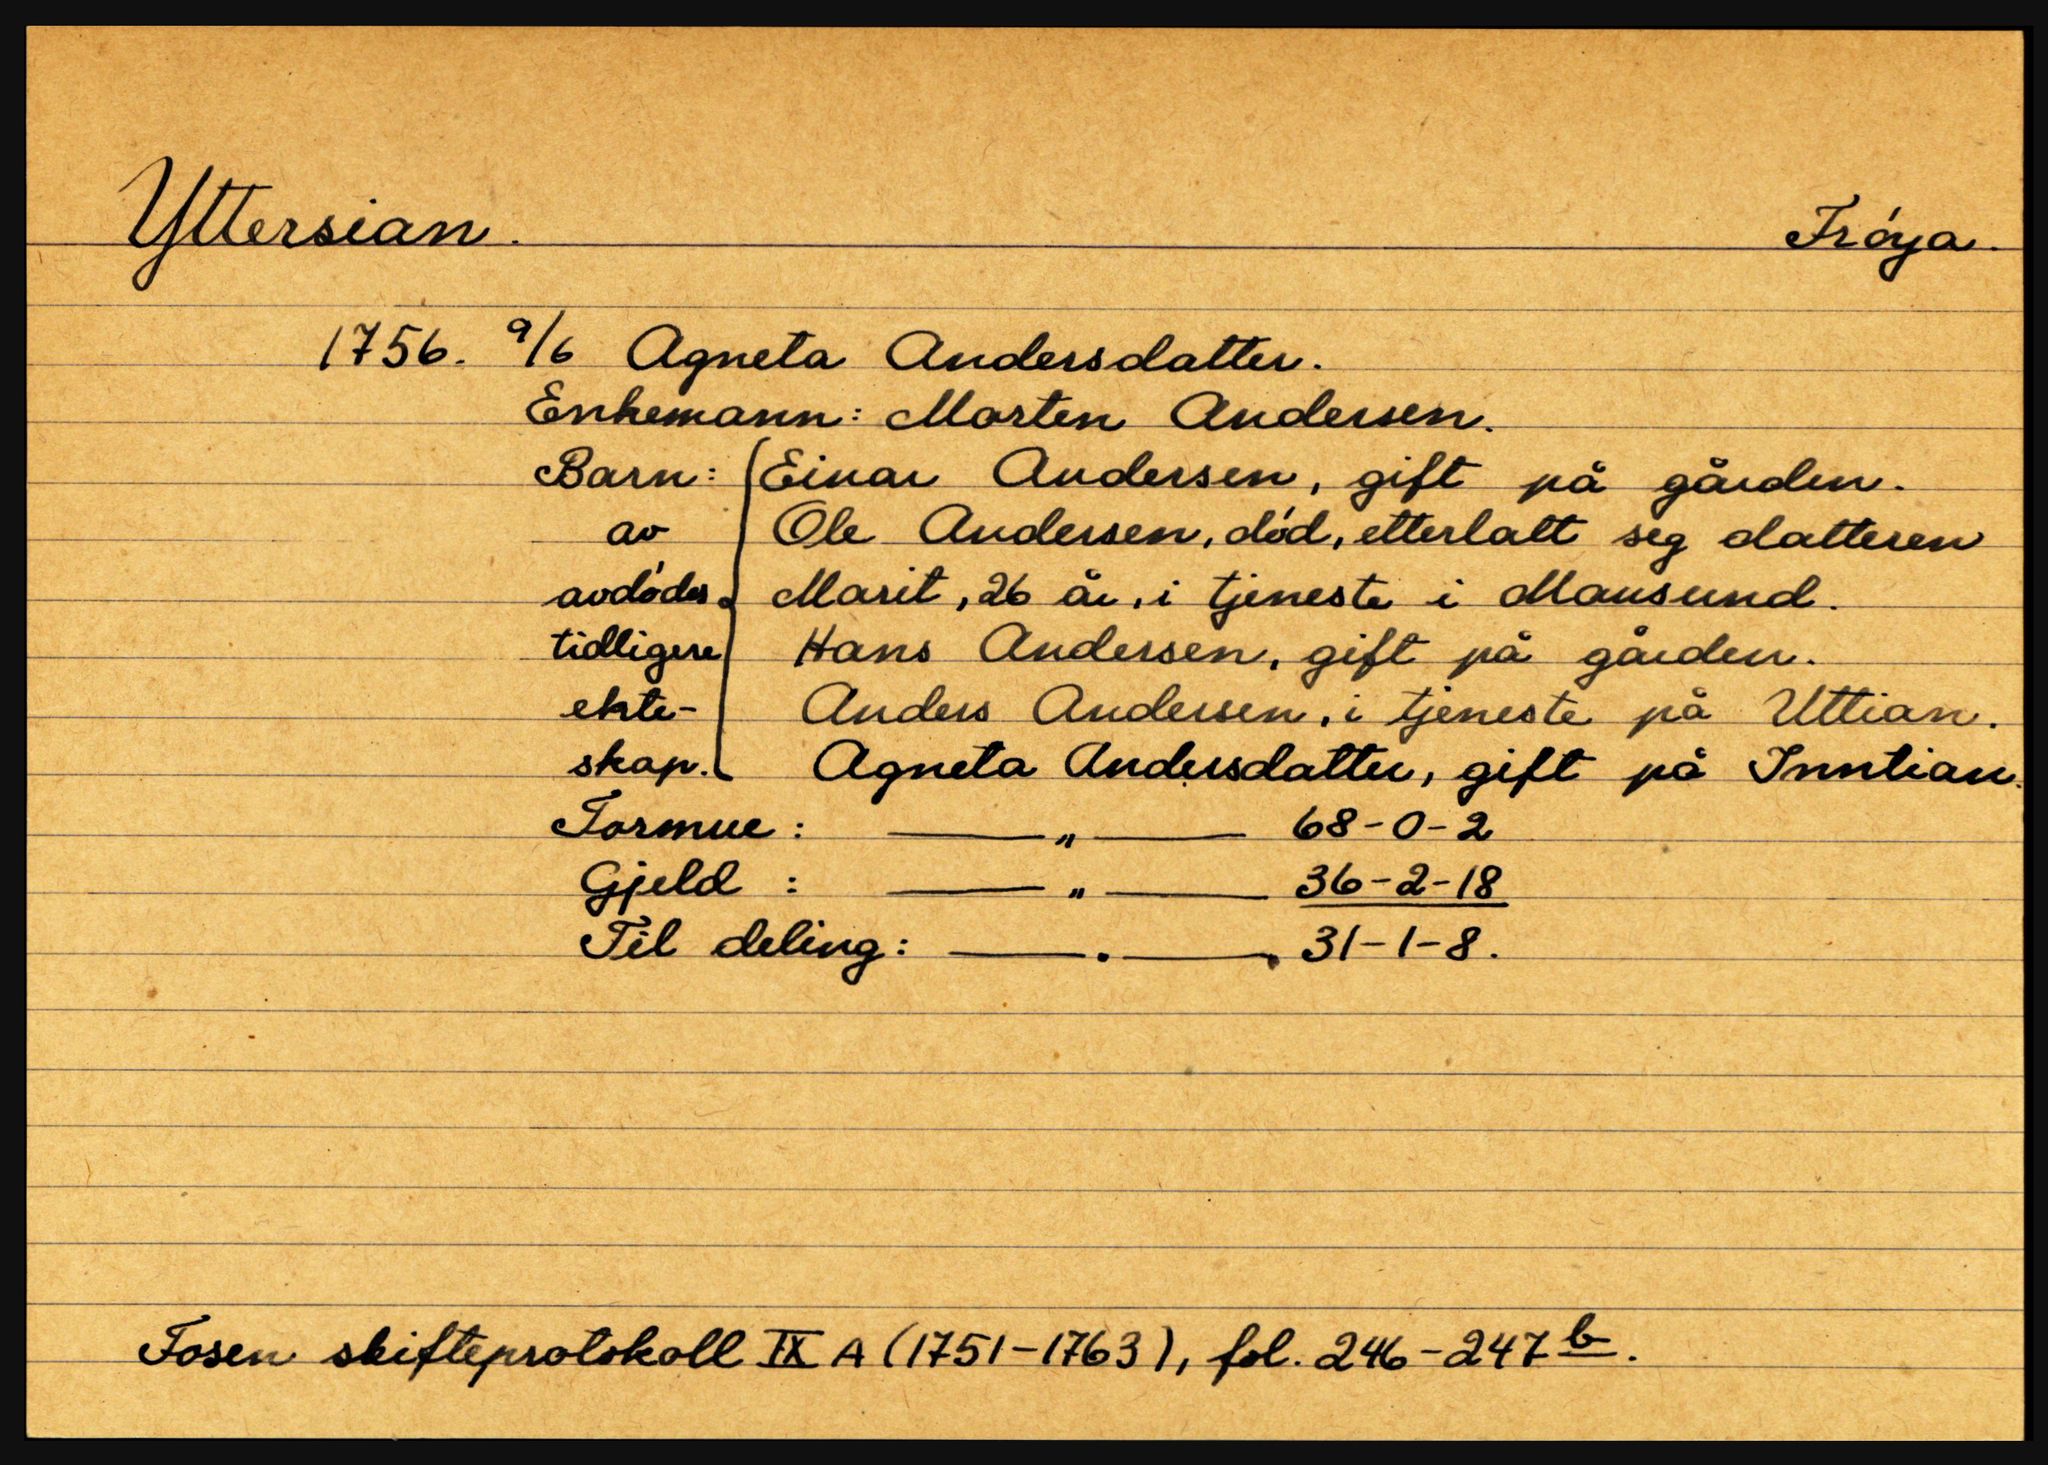 Yttersian. Frøya.
1756. 9/6 Agneta Andersdatter.
Enkemann: Morten Andersen.
Barn: Einar Andersen, gift på gården.
av Ole Andersen, død, etterlatt seg datteren
avdødes Marit, 26 år, i tjeneste i Mausund.
tidligere Hans Andersen, gift på gården.
ekte- Anders Andersen, i tjeneste på Uttian.
skap. Agneta Andersdatter, gift på Inntian.
Formue: —— „ —— 68-0-2
Gjeld : —— „ —— 36-2-18
Til deling: —— . —— . 31-1-8.
Fosen skifteprotokoll IX A (1751-1763), fol. 246-247 b.